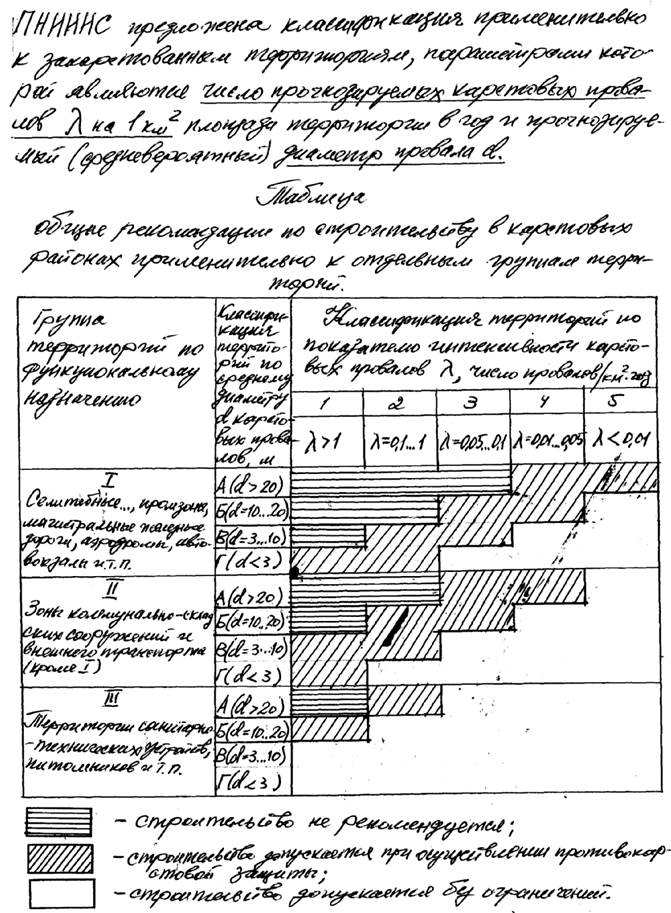 ПНИИИС предложена классификация применительно
к закарстованным территориям, параметрами кото-
рой являются число прогнозируемых карстовых прова-
лов λ на 1 км² площади территории в год и прогнозируе-
мый (средневероятный) диаметр провала d.
Таблица
общие рекомендации по строительству в карстовых
районах применительно к отдельным группам терри-
торий.
Группа
территорий по
функциональному
назначению
Классифи-
кация
террито-
рий по
среднему
диаметру
d карсто-
вых прова-
лов, м
Классификация территорий по
показателю интенсивности карсто-
вых провалов λ, число провалов/км²·год
1 2 3 4 5
λ>1 λ=0,1...1 λ=0,05...0,1 λ=0,01...0,05 λ<0,01
I
Селитебные..., промзоны,
магистральные железные
дороги, аэродромы, авто-
вокзалы и т.п.
А(d>20)
Б(d=10...20)
В(d=3...10)
Г(d<3)
II
Зоны коммунально-склад-
ских сооружений и
внешнего транспорта
(кроме I)
А(d>20)
Б(d=10..20)
В(d=3...10)
Г(d<3)
III
Территории санитарно-
-технических устройств,
питомников и т.п.
А(d>20)
Б(d=10...20)
В(d=3...10)
Г(d<3)
- строительство не рекомендуется;
- строительство допускается при осуществлении противокар-
стовой защиты;
- строительство допускается без ограничений.